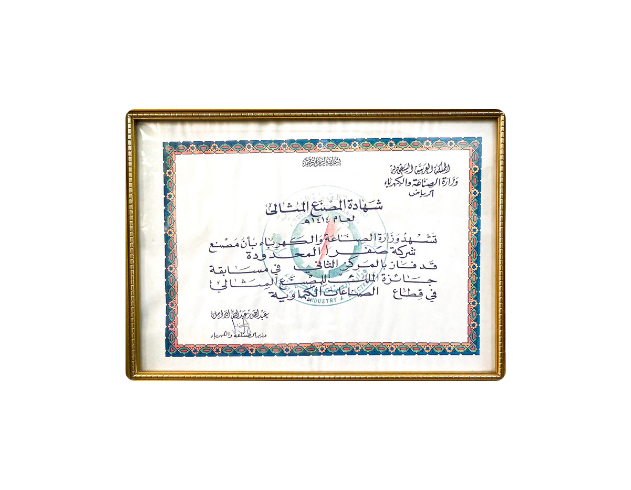 بسم الله الرحمن الرحيم
المملكة العربية السعودية
وزارة الصناعة والكهرباء
الرياض
شهادة المصنع المثالي
لعام ١٤١٤هـ
تشهد وزارة الصناعة والكهرباء بأن مصنع
شركة صفرا المحدودة
قد فاز بالمركز الثاني في مسابقة
جائزة الملك للمصنع المثالي
في قطاع الصناعات الكيماوية
INDUSTRY &
وزير الصناعة والكهرباء